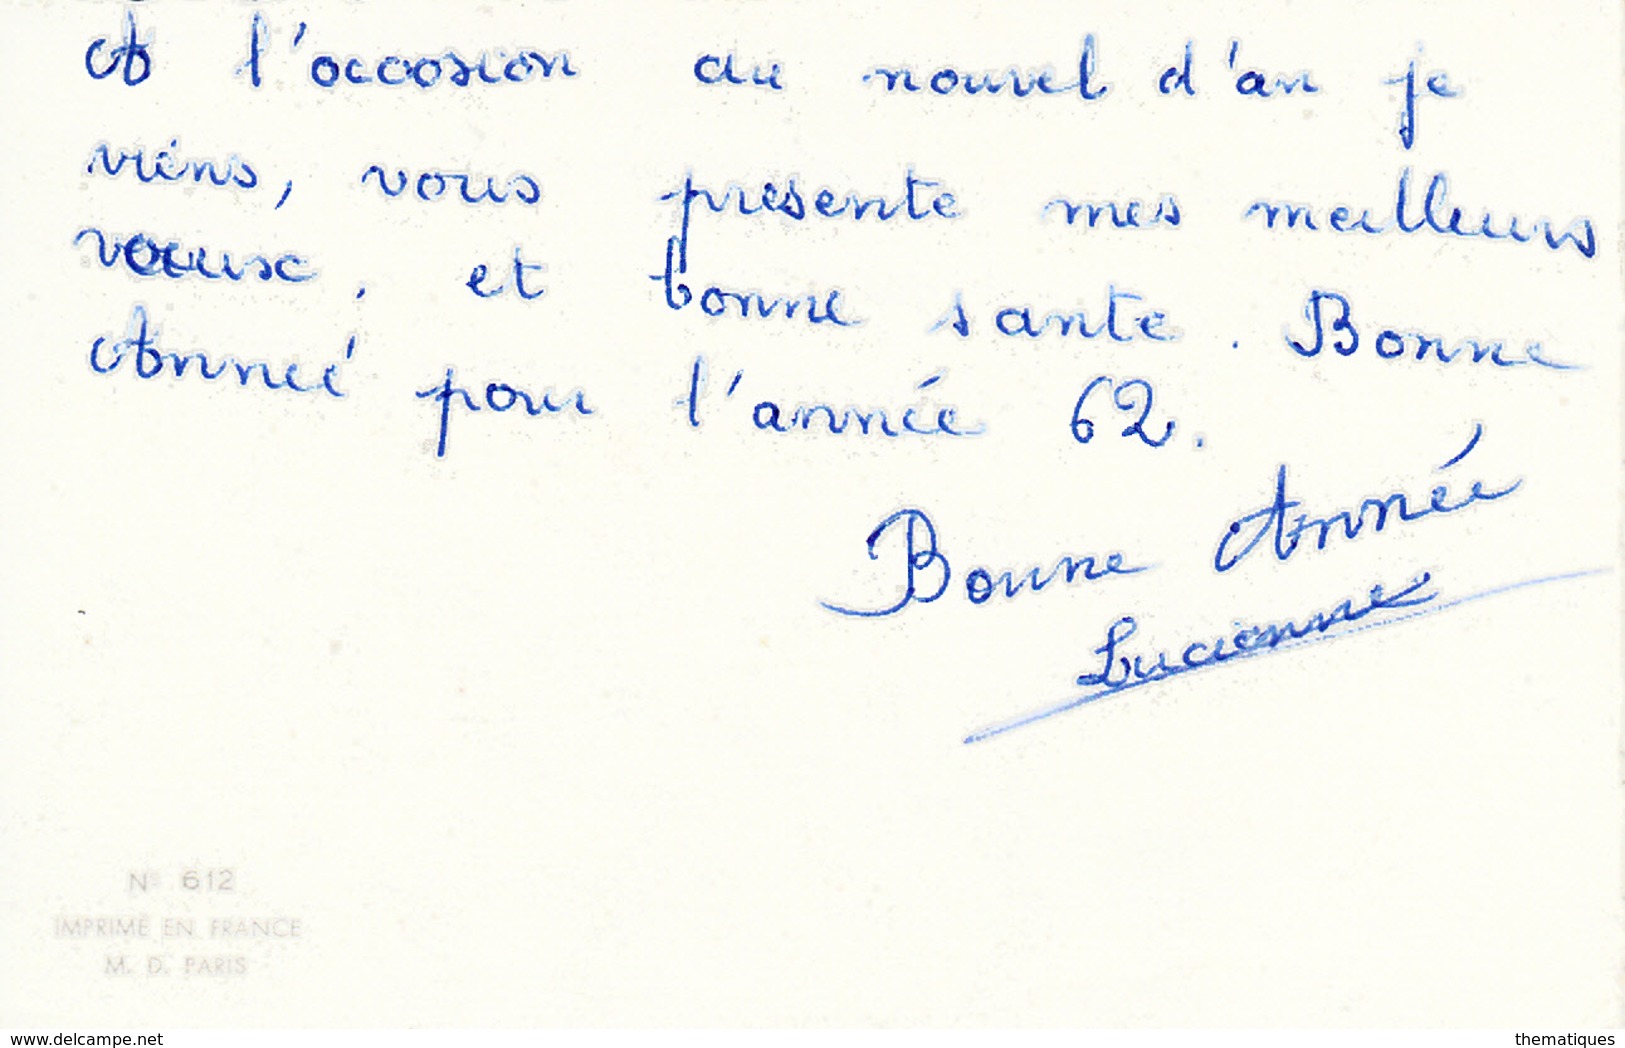 A l'occasion du nouvel d'an je
viens, vous présente mes meilleurs
voeux, et bonne sante. Bonne
Anneé pour l'année 62.
Bonne Année
Lucienne
N° 612
IMPRIMÉ EN FRANCE
M. D. PARIS
www.delcampe.net
thematiques